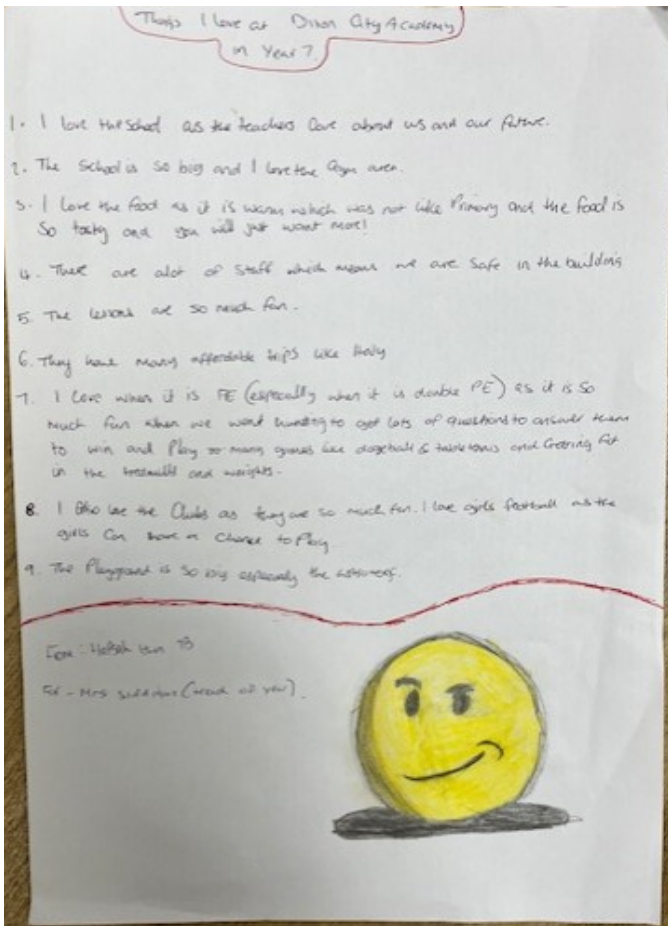 Things I love at Dixon City Academy
in Year 7.
1. I love the school as the teachers care about us and our future.
2. The School is so big and I love the Gym area.
3. I Love the food as it is warm which was not like Primary and the food is
So tasty and you will just want more!
4. There are alot of Staff which means we are Safe in the building
5. The lessons are so much fun.
6. They have many affordable trips like Italy
7. I Love when it is PE (especially when it is double PE) as it is so
much fun when we went to get lots of questions to answer
to win and Play so many games like dogeball & and Getting fit
in the and weights.
8. I also love the Clubs as they are so much fun. I love girls football as the
girls Can have a Chance to Play
9. The Playground is So big especially the
From:
- Mrs (head of year).